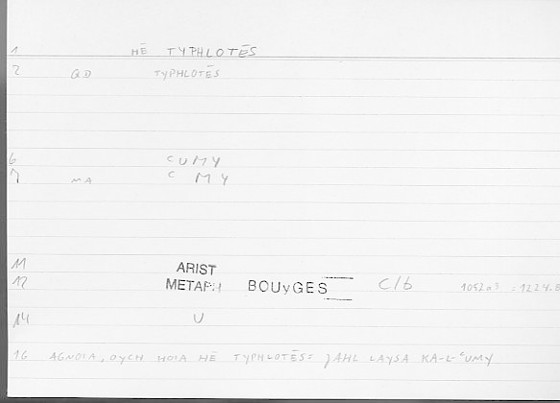 1 HĒ TYPHLOTĒS
2 QD TYPHLOTĒS
6 ᶜUMY
7 MA ᶜMY
11 ARIST
12 METAPH BOUyGES C/b 1052a3 :1224.8
14 U
16 AGNOIA, OYCH HOIA HĒ TYPHLOTĒS: ǦAHL LAYSA KA-L-ᶜUMY